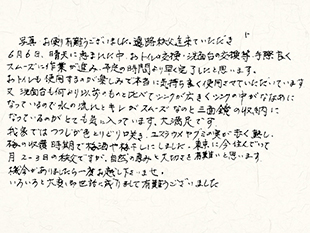 写真お便り有難うございました。遠路秩父迄来ていただき
6月6日、晴天に恵まれた中、おトイレの交換・洗面台の交換等、手際良く
スムーズに作業が進み、予定の時間より早く完了したと思います。
おトイレも使用するのが楽しみで本当に気持ち良く使用させていただいています
又洗面台も何より以前のものと比べてシンクが広くシンクの中がなめらかに
なっているので水の流れとキレがスムーズなのと三面鏡の収納に
なっているのがとても気に入っています。大満足です
我家ではウツギが色とりどり咲き、ユスラウメやグミの実が赤く熟し、
梅の収穫時期で梅酒や梅干しにしました。東京に今住んでいて
月2〜3日の秩父ですが、自然の恵みと大切さを有難いと思います。
機会がありましたら一度お越し下さいませ。
いろいろと大変お世話に成りまして有難うございました